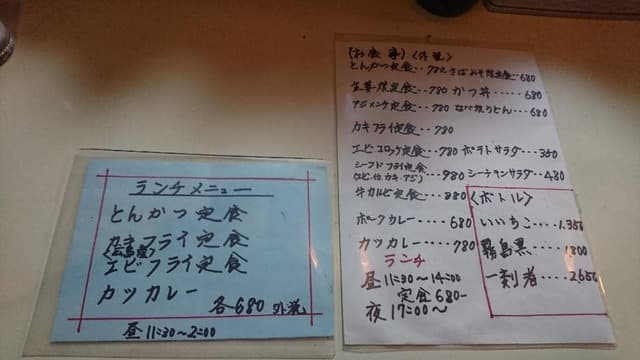 ランチメニュー
とんかつ定食
カキフライ定食
(広島産)
エビフライ定食
カツカレー
各680 外税
昼 11:30〜2:00
(お食事)(外税)
とんかつ定食・・780 さばみそ煮定食・・680
生姜焼定食・・780 かつ丼・・・・・680
アジメンチ定食・・780 なべ焼うどん・・680
カキフライ定食・・780
エビ、コロッケ定食・・780 ポテトサラダ・・・350
シーフードフライ定食
(エビ、カキ、アジ)・・980 シーチキンサラダ・・480
牛カルビ定食・・・880
ポークカレー・・・・680
カツカレー・・・・・780
ランチ
昼 11:30〜14:00
定食 680-
夜 17:00〜
<ボトル>
いいちこ・・・1.350
霧島黒・・・・1.800
一刻者・・・・2.650